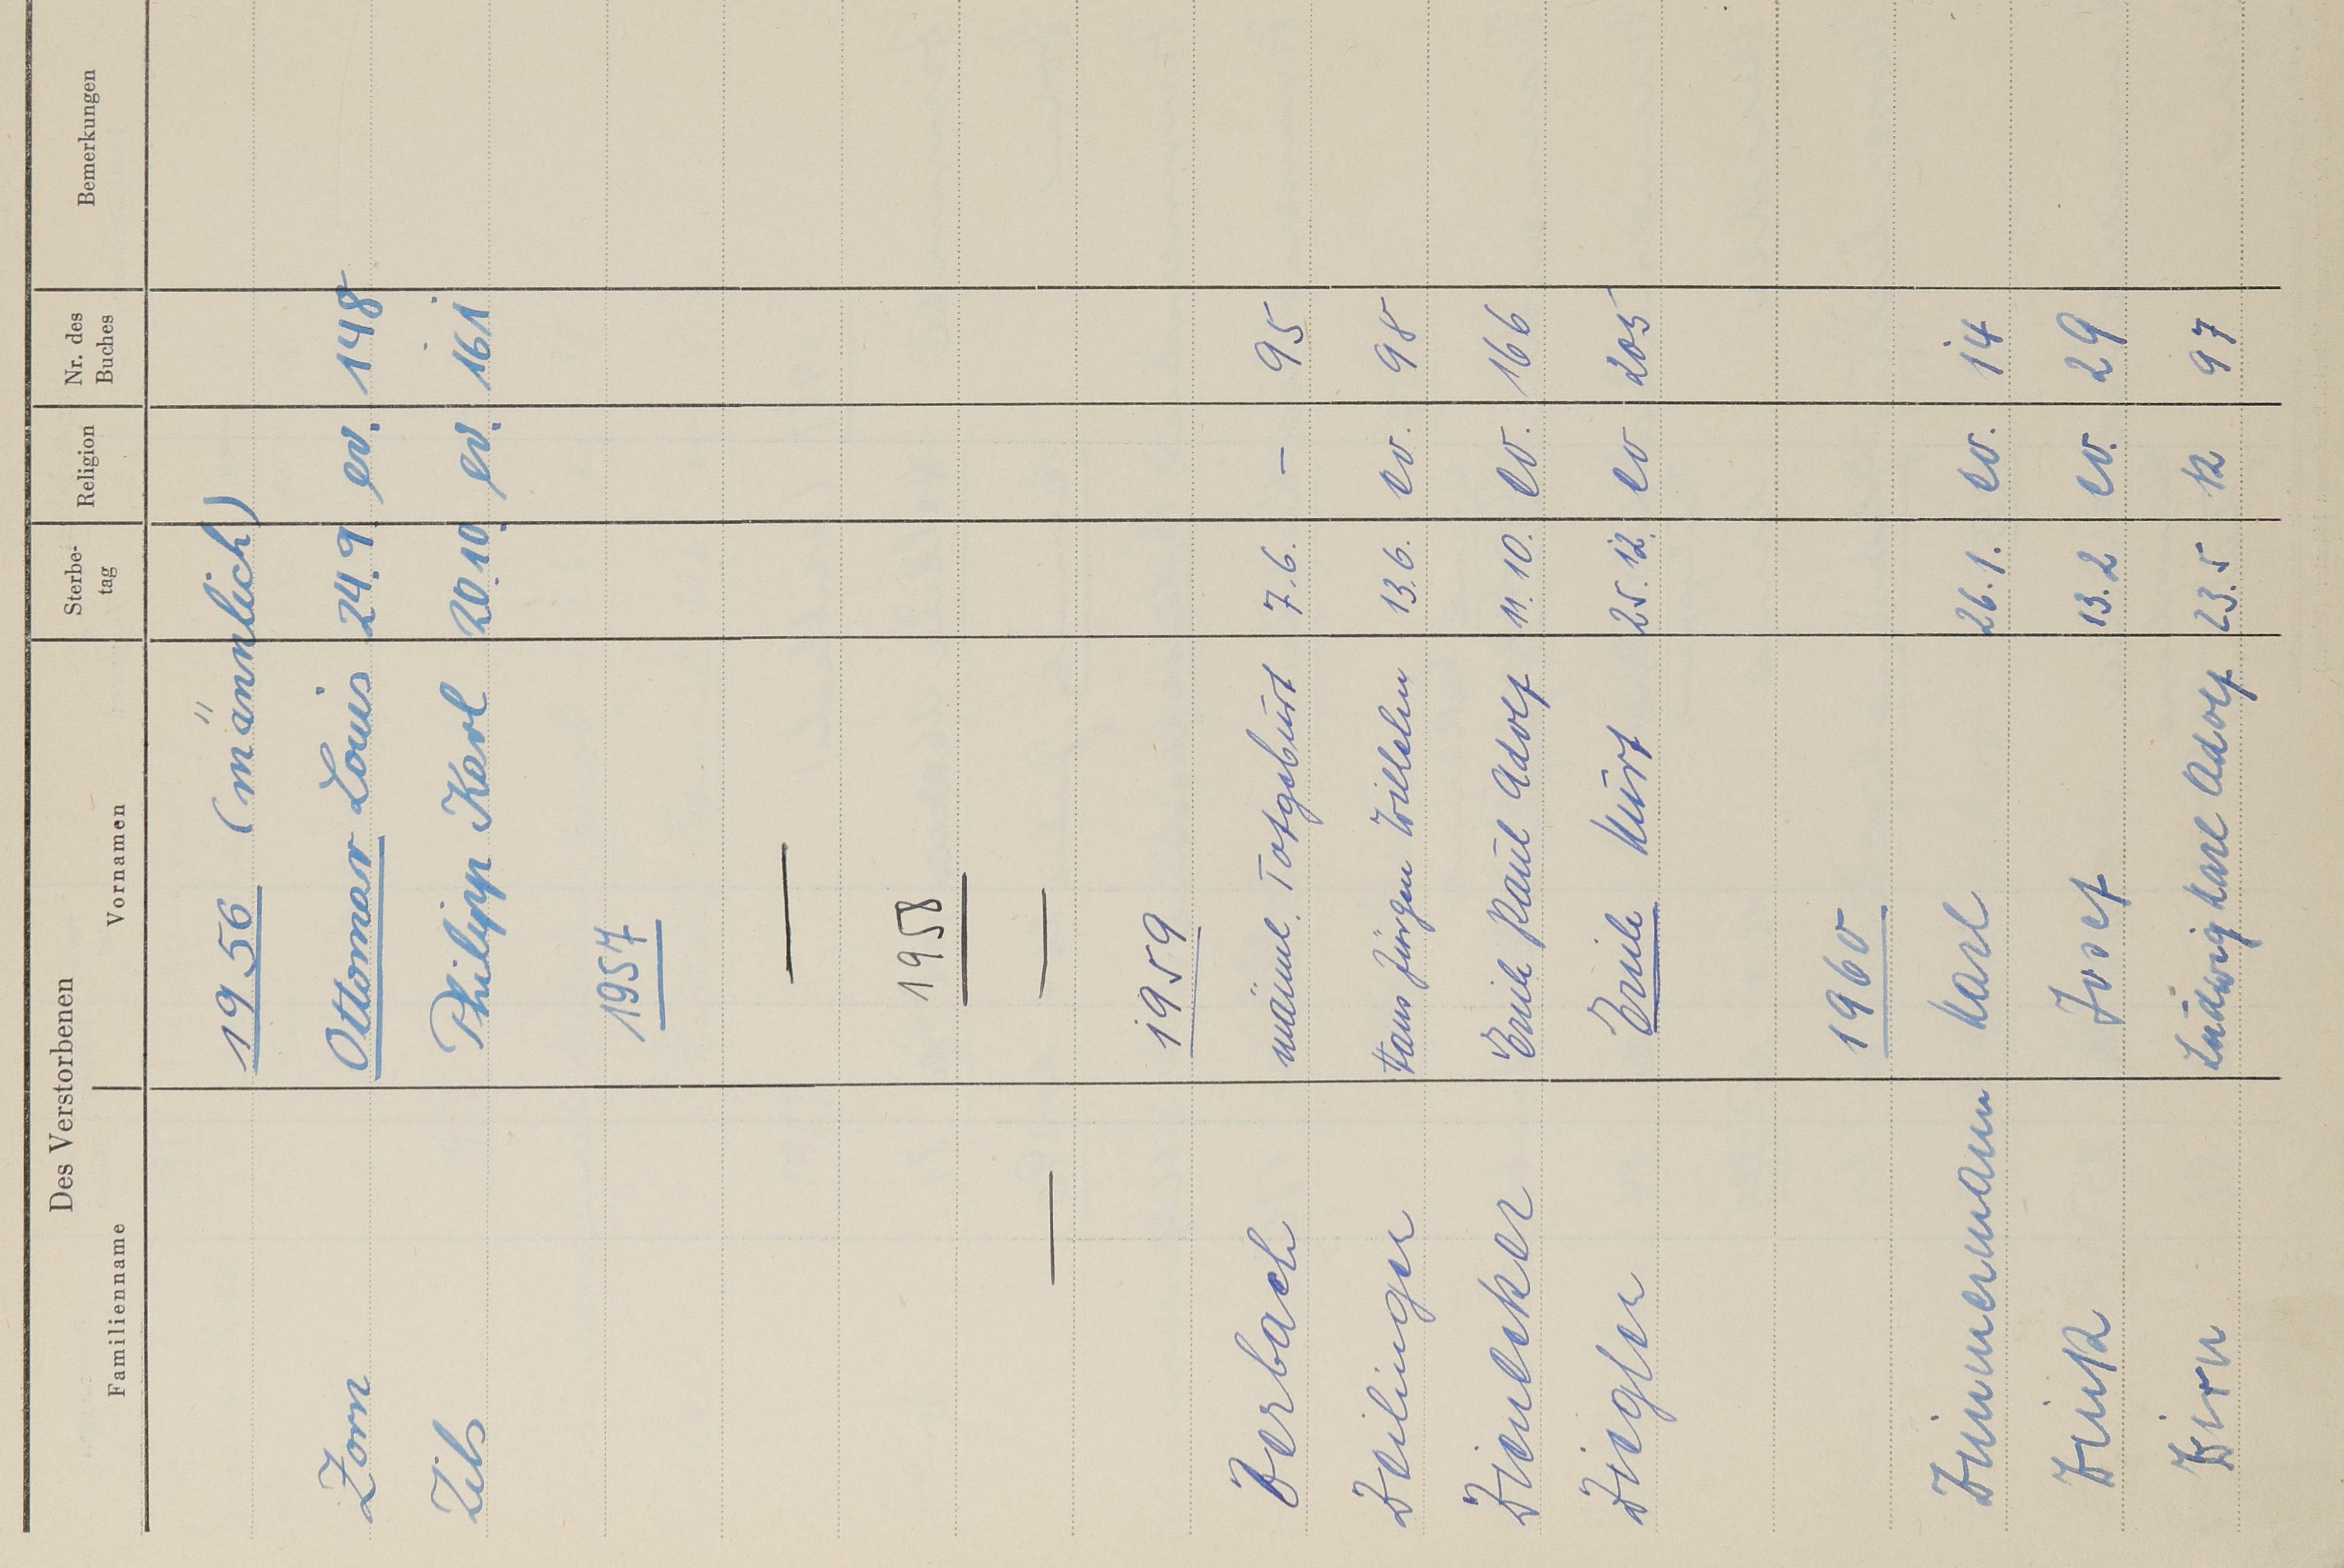 Des Verstorbenen
Familienname Vornamen Sterbe-
tag Religion Nr. des
Buches Bemerkungen
1956 (männlich)
Zorn Ottomar Louis 24.9. ev. 148
Zils Philipp Karl 20.10. ev. 161
1957
—
1958
— —
1959
Zerbach männl. Totgeburt 7.6. – 95
Zeilinger Hans Jürgen Willelm 13.6. ev. 98
Zieneker Erich Paul Adolf 11.10. ev. 166
Ziegler Erich Kurt 25.12. ev 205
1960
Zimmermann Karl 26.1. ev. 14
Zink Josef 13.2 ev. 29
Zirn Ludwig Karl Adolf 23.5 k 97